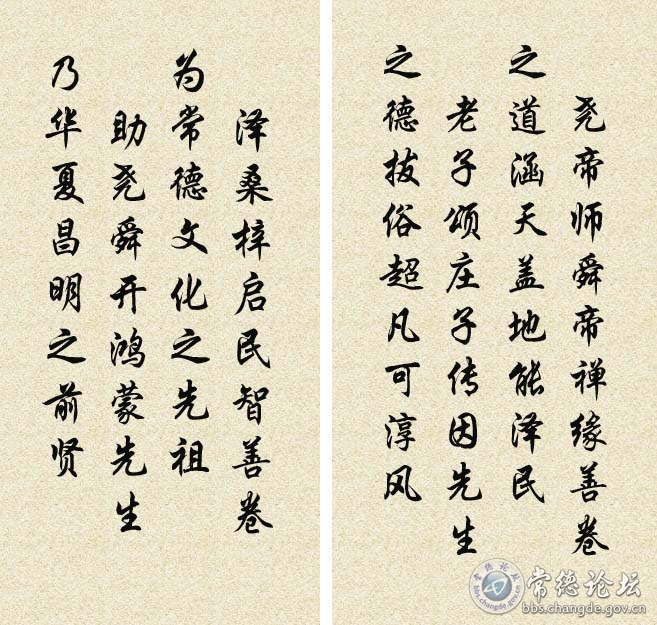 尧帝师舜帝禅缘善卷
之道涵天盖地能泽民
老子颂庄子传因先生
之德拔俗超凡可淳风
泽桑梓启民智善卷
为常德文化之先祖
助尧舜开鸿蒙先生
乃华夏昌明之前贤
常德论坛
常德论坛
bbs.changde.gov.cn